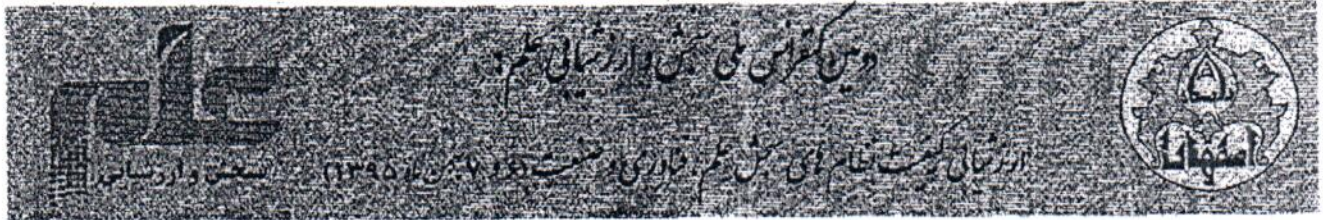 دومین کنفرانس ملی سنجش و ارزشیابی علم:
ارزشیابی کیفیت نظام های سنجش علم، فناوری و صنعت بهمن ماه ۱۳۹۵)
علم
سنجش و ارزشیابی
اصفهان